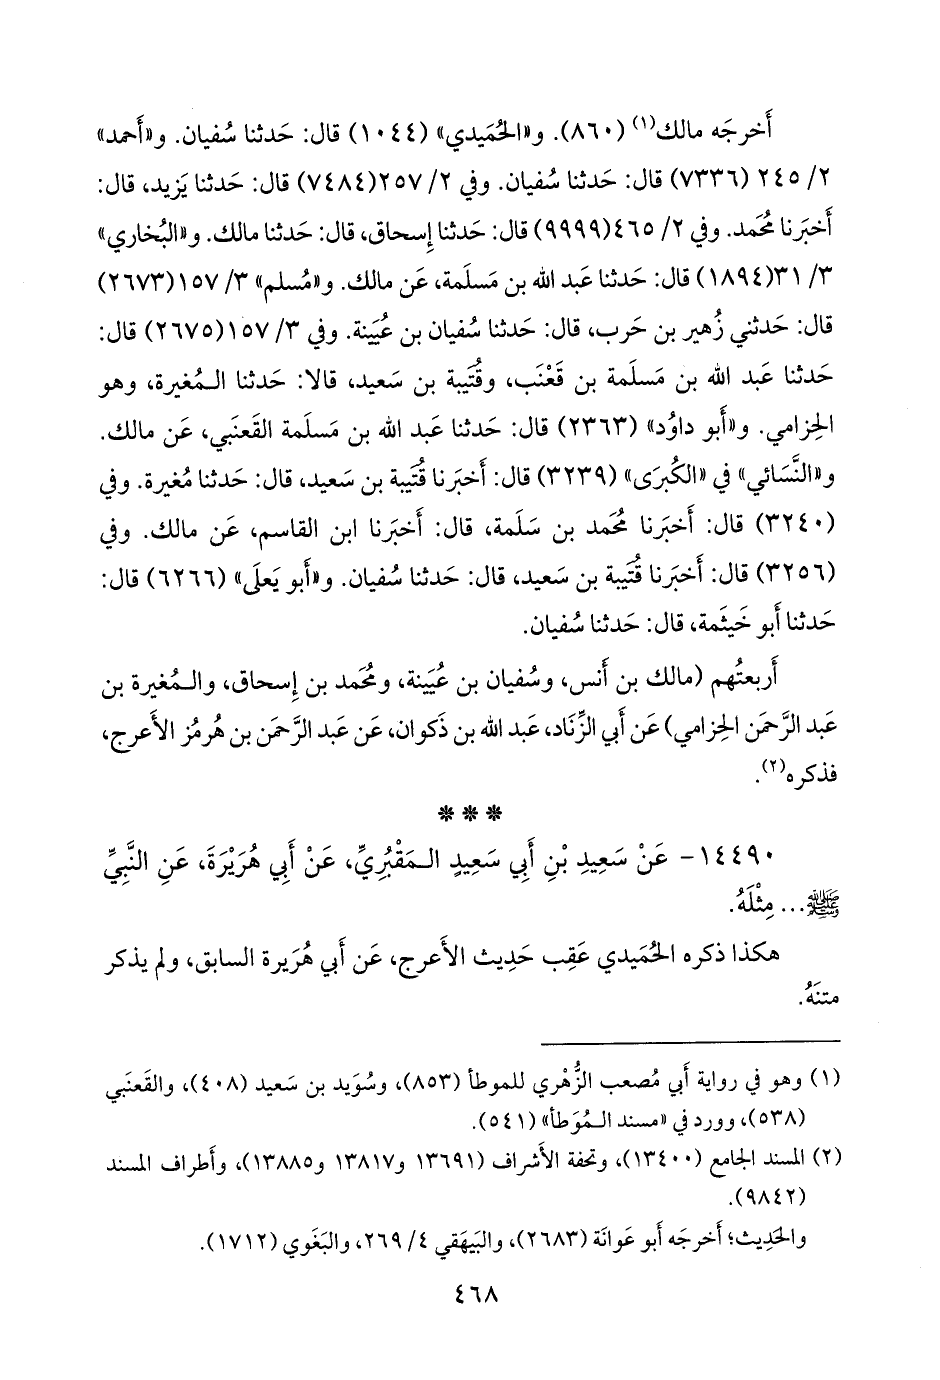 أَخرجَه مالك(١) (٨٦٠). و«الحُمَيدي» (١٠٤٤) قال: حَدثنا سُفيان. و«أَحمد»
٢/ ٢٤٥ (٧٣٣٦) قال: حَدثنا سُفيان. وفي ٢/ ٢٥٧(٧٤٨٤) قال: حَدثنا يَزيد، قال:
أَخبَرنا مُحَمد. وفي ٢/ ٤٦٥(٩٩٩٩) قال: حَدثنا إِسحاق، قال: حَدثنا مالك. و«البُخاري»
٣/ ٣١(١٨٩٤) قال: حَدثنا عَبد الله بن مَسلَمة، عَن مالك. و«مُسلم» ٣/ ١٥٧(٢٦٧٣)
قال: حَدثني زُهير بن حَرب، قال: حَدثنا سُفيان بن عُيَينة. وفي ٣/ ١٥٧(٢٦٧٥) قال:
حَدثنا عَبد الله بن مَسلَمة بن قَعْنَب، وقُتَيبة بن سَعيد، قالا: حَدثنا الـمُغيرة، وهو
الحِزامي. و«أَبو داوُد» (٢٣٦٣) قال: حَدثنا عَبد الله بن مَسلَمة القَعنَبي، عَن مالك.
و«النَّسَائي» في «الكُبرَى» (٣٢٣٩) قال: أَخبَرنا قُتَيبة بن سَعيد، قال: حَدثنا مُغيرة. وفي
(٣٢٤٠) قال: أَخبَرنا مُحَمد بن سَلَمة، قال: أَخبَرنا ابن القاسم، عَن مالك. وفي
(٣٢٥٦) قال: أَخبَرنا قُتَيبة بن سَعيد، قال: حَدثنا سُفيان. و«أَبو يَعلَى» (٦٢٦٦) قال:
حَدثنا أَبو خَيثَمة، قال: حَدثنا سُفيان.
أَربعتُهم (مالك بن أَنس، وسُفيان بن عُيَينة، ومُحَمد بن إِسحاق، والـمُغيرة بن
عَبد الرَّحمَن الحِزامي) عَن أَبي الزِّنَاد، عَبد الله بن ذَكوان، عَن عَبد الرَّحمَن بن هُرمُز الأَعرج،
فذكره(٢).
* * *
١٤٤٩٠- عَنْ سَعِيدِ بْنِ أَبِي سَعِيدٍ الـمَقْبُرِيِّ، عَنْ أَبِي هُرَيْرَةَ، عَنِ النَّبِيِّ
ﷺ... مِثْلَهُ.
هكذا ذكره الحُمَيدي عَقِب حَديث الأَعرج، عَن أَبي هُرَيرة السابق، ولم يذكر
متنَهُ.
(١) وهو في رواية أَبي مُصعب الزُّهْري للموطأ (٨٥٣)، وسُوَيد بن سَعيد (٤٠٨)، والقَعنَبي
(٥٣٨)، وورد في «مسند الـمُوَطأ» (٥٤١).
(٢) المسند الجامع (١٣٤٠٠)، وتحفة الأَشراف (١٣٦٩١ و١٣٨١٧ و١٣٨٨٥)، وأَطراف المسند
(٩٨٤٢).
والحَدِيث؛ أَخرجَه أَبو عَوانَة (٢٦٨٣)، والبَيهَقي ٤/ ٢٦٩، والبَغَوي (١٧١٢).
٤٦٨